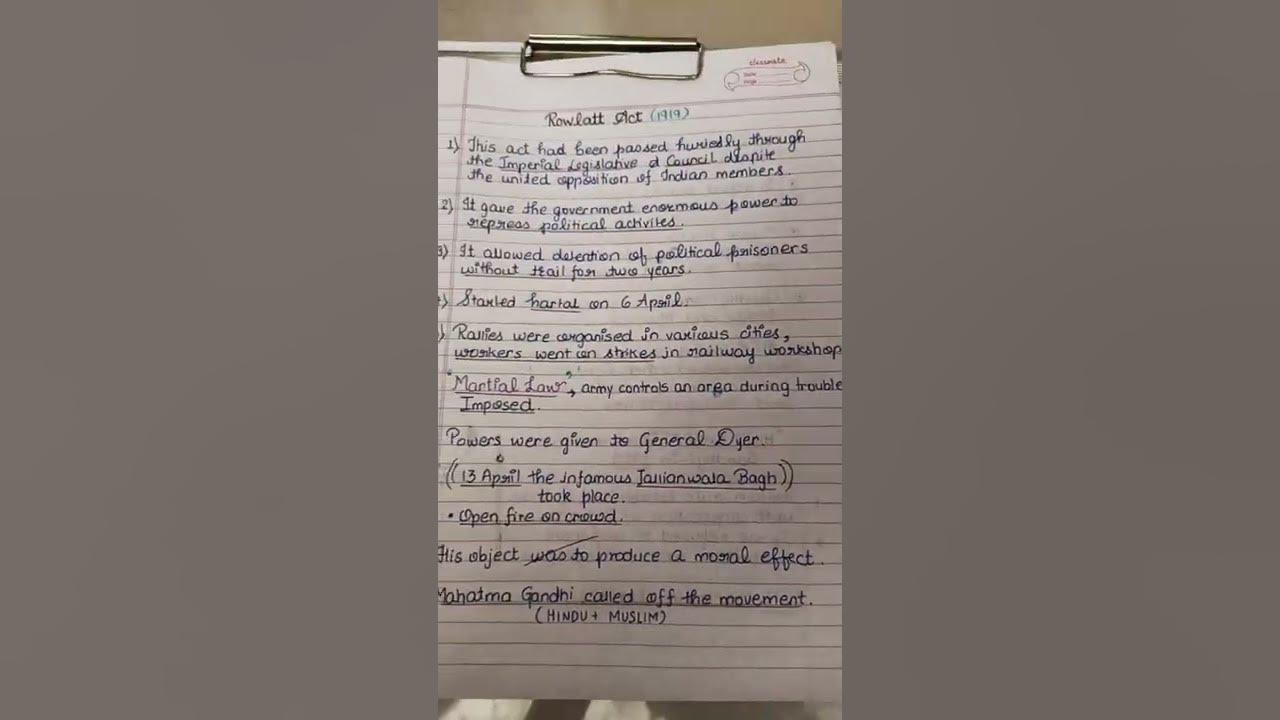 classmate
Date
Page
Rowlatt Act (1919)
1) This act had been passed huriedly through
the Imperial Legislative d Council despite
the united opposition of Indian members.
2) It gave the government enormous power to
repress political activites.
3) It allowed detention of political prisoners
without trail for two years.
) Started hartal on 6 April.
) Rallies were organised in various cities,
workers went on strikes in railway workshop
"Martial Law", army controls an area during trouble
Imposed.
Powers were given to General Dyer.
((13 April the infamous Jallianwala Bagh))
took place.
• Open fire on crowd.
His object was to produce a moral effect.
Mahatma Gandhi called off the movement.
(HINDU + MUSLIM)